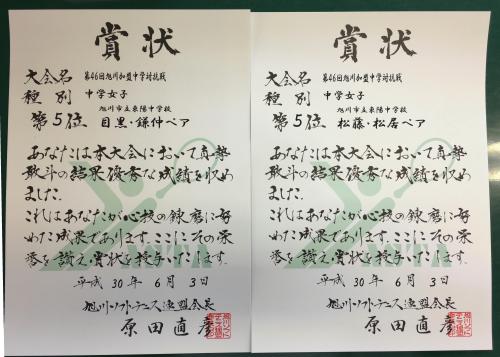 賞状
大会名 第46回旭川加盟中学対抗戦
種別 中学女子
旭川市立東陽中学校
第5位 目黒・鎌仲ペア
あなたは本大会において真摯
敢斗の結果優秀な成績を収め
ました
これはあなたが心技の錬磨に努
めた成果であります ここにその栄
誉を讃え賞状を授与いたします
平成 30年 6月 3日
旭川ソフトテニス連盟会長
原田直彦
賞状
大会名 第46回旭川加盟中学対抗戦
種別 中学女子
旭川市立東陽中学校
第5位 松藤・松居ペア
あなたは本大会において真摯
敢斗の結果優秀な成績を収め
ました
これはあなたが心技の錬磨に努
めた成果であります ここにその栄
誉を讃え賞状を授与いたします
平成 30年 6月 3日
旭川ソフトテニス連盟会長
原田直彦